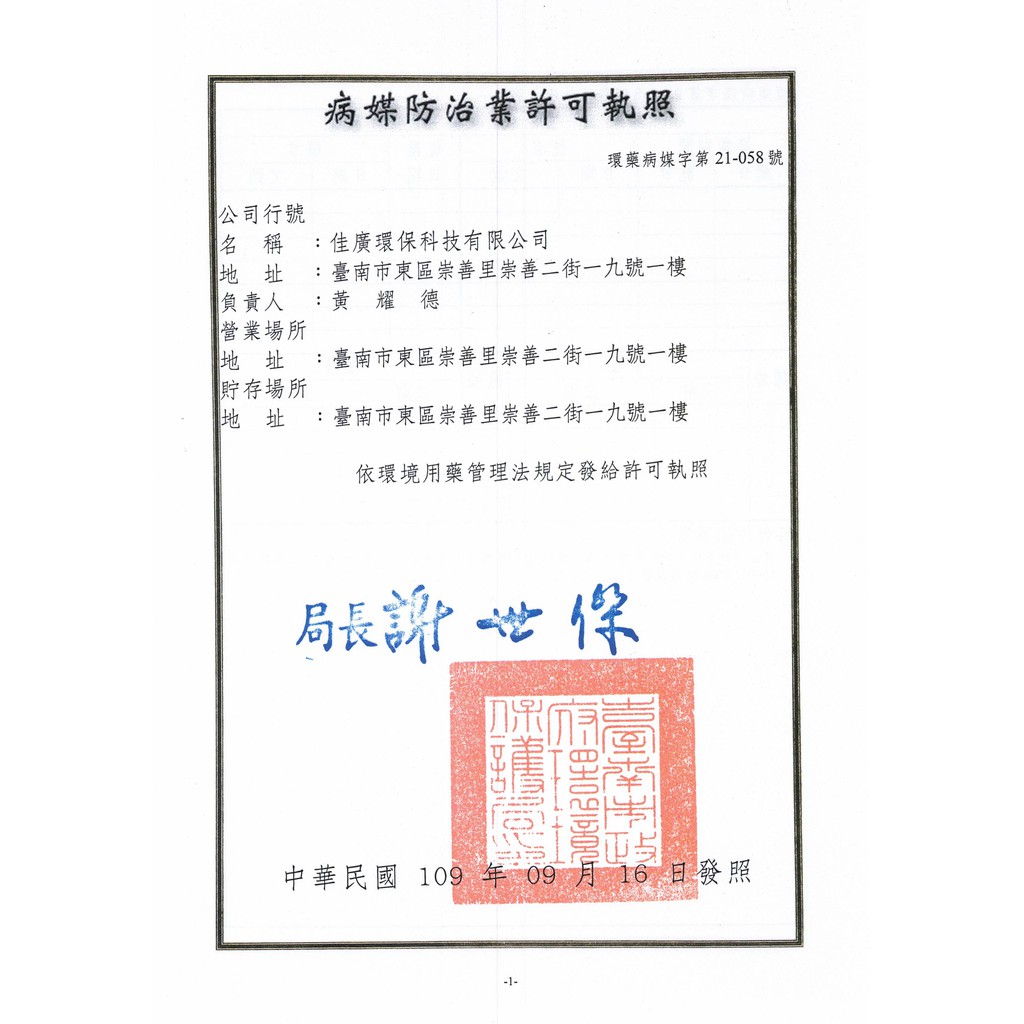 病媒防治業許可執照
環藥病媒字第 21-058 號
公司行號
名 稱 ：佳廣環保科技有限公司
地 址 ：臺南市東區崇善里崇善二街一九號一樓
負責人 ：黃 耀 德
營業場所
地 址 ：臺南市東區崇善里崇善二街一九號一樓
貯存場所
地 址 ：臺南市東區崇善里崇善二街一九號一樓
依環境用藥管理法規定發給許可執照
局長謝世傑
臺南市政
府環境
保護局印
中華民國 109 年 09 月 16 日發照
-1-